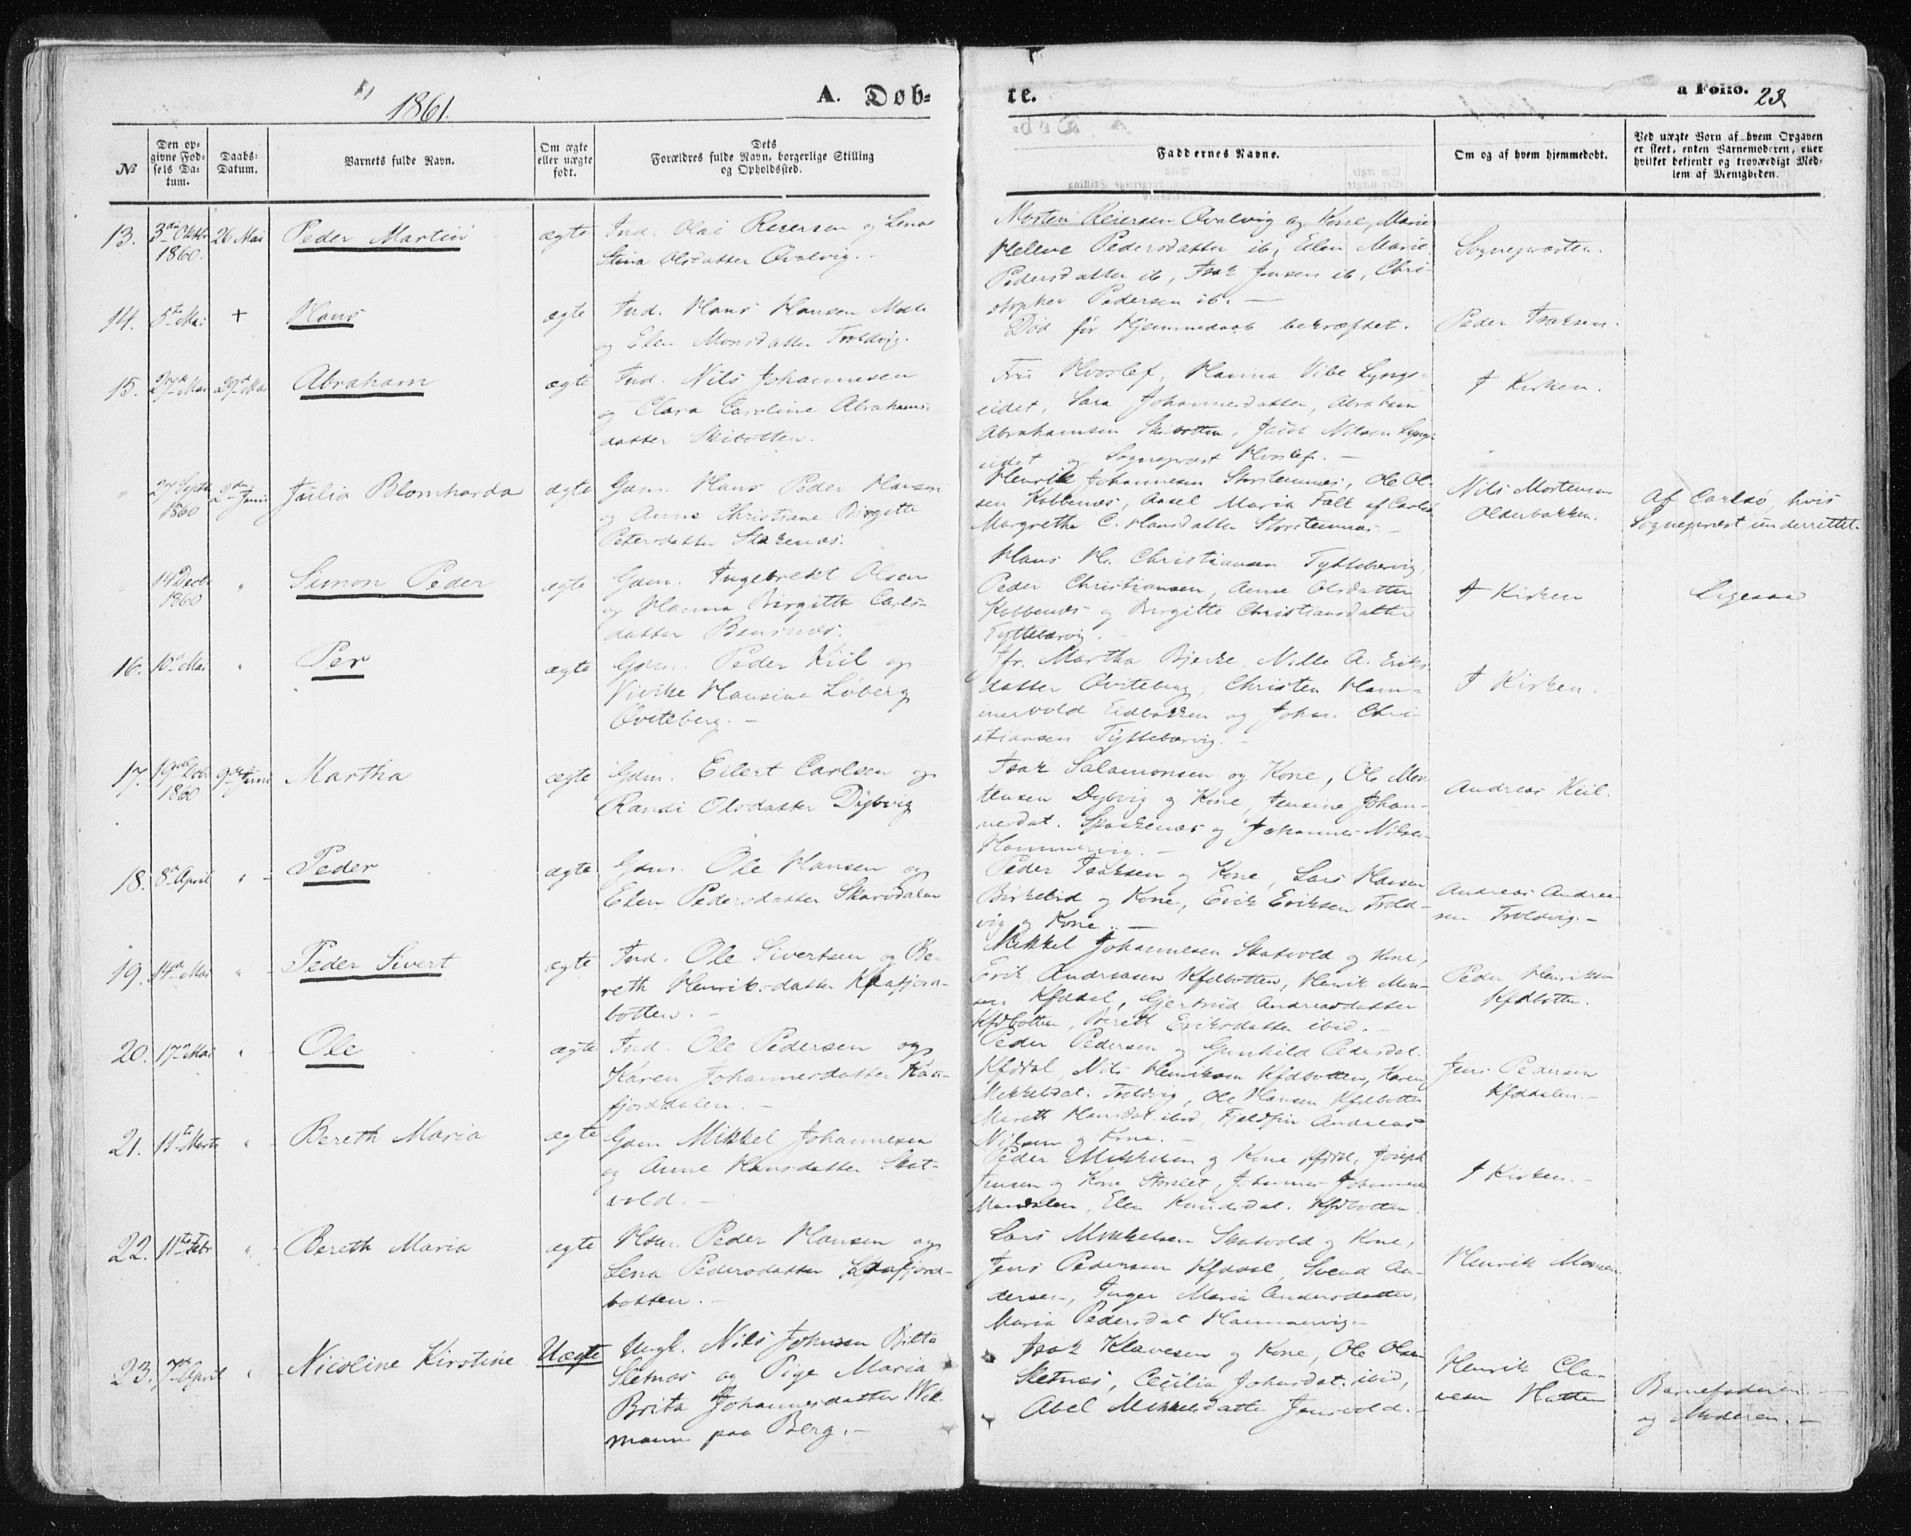 1861.
A. Døb-
te.
a Folio. 23
№
Den op-
givne Fød-
sels Da-
tum.
Daabs-
Datum.
Barnets fulde Navn.
Om ægte
eller uægte
født.
Dets
Forældres fulde Navn, borgerlige Stilling
og Opholdssted.
Faddernes Navne.
Om og af hvem hjemmedøbt.
Ved uægte Børn af hvem Opgaven
er skeet, enten Barnemoderen, eller
hvilket bekjendt og troværdigt Med-
lem af Menigheden.
13. 3die Oktbr 1860. 26 Mai Peder Martin ægte
Ind. Olai Reiersen og Lena
Stina Olsdatter Qvalvig.
Morten Reiersen Qvalvig og Kone, Marie
Helene Pedersdatter ib, Elen Marie
Pedersdatter ib, Isak Jensen ib, Chri-
stopher Pedersen ib. —
Sognepresten.
14. 5te Mai + Hans ægte
Ind. Hans Hansen
og Elen Monsdatter Troldvig.
Død før Hjemmedaab bekræftet.
Peder Isaksen.
15. 27de Mai 29de Mai Abraham ægte
Ind. Nils Johannesen
og Clara Caroline Abrahams-
datter Skibotten.
Fru Hvoslef, Hanna Vibe Lyngs-
eidet, Sara Johannesdatter, Abraham
Abrahamsen Skibotten, Jacob Nilsen Lyngs-
eidet og Sognepræst Hvoslef. —
I Kirken.
" 27 Septbr 1860 2den Juni Julia Blomharda ægte
Gdm. Hans Peder Hansen
og Anne Christiane Birgitte
Petersdatter
Henrik Johannesen Storstennæs, Ole Ol-
sen Kobbenes, Aasel Maria Falk af Carlsø
Margrethe C. Hansdatter Storstennæs —
Nils Mortensen
Olderbakken.
Af Carlsø, hvis
Sognepræst underrettet.
" 14 Decbr 1860 " Simon Peder ægte
Gdm. Ingebrekt Olsen
og Hanna Birgitte Carls-
datter Bensnæs.
Hans H. Christiansen Tyttebærvig,
Peder Christiansen, Anne Olsdatter
Kobbenes og Birgitte Christiansdatter
Tyttebærvig. —
I Kirken
Ligesaa
16. 10de Mai " Per ægte
Gdm. Peder Kiil og
Vivike Hansine Løberg
Qviteberg. —
Jfr. Martha Bjerke, Nille A. Eriks-
datter Qviteberg, Christen Ham-
mervold Eidbakken og Johan Chri-
stiansen Tyttebærvig. —
I Kirken.
17. 19de 1860 9de Juni Martha ægte
Gdm. Eilert Carlsen og
Randi Olsdatter Dybvig
Isak Salamonsen og Kone, Ole Mor-
tensen Dybvig og Kone, Jensine Johan-
nesdat. Spaakenæs og Johannes Nilsen
Hammervig. —
Andreas Kiil.
18. 8de April " Peder ægte
Gdm. Ole Hansen og
Elen Pedersdatter Skarsdalen
Peder Isaksen og Kone, Lars Hansen
Birkelid og Kone, Erik Eriksen Trold-
vig og Kone. —
Andreas Andrea-
sen Troldvig. —
19. 14de Mai " Peder Sivert ægte
Ind. Ole Sivertsen og Be-
reth Henriksdatter Kaafjord-
botten. —
Mikkel Johannesen Skatvold og Kone,
Erik Andreasen Kfdbotten, Henrik Mon-
sen Kfddal, Gjertrud Andreasdatter
Kfdbotten, Bereth Eriksdatter ibid. —
Peder Henriksen
Kfdbotten.
20. 17de Mai " Ole ægte
Ind. Ole Pedersen og
Karen Johannesdatter Kaa-
fjorddalen. —
Peder Pedersen og Gunhild Pedersdat.
Kfddal, Nils Henriksen Kfdbotten, Karen
Mikkelsdat. Troldvig, Ole Hansen Kfdbotten
Mareth Hansdat. ibid, Fjeldfin Andreas
Nilsen og Kone. —
Jens Pedersen
Kfddalen. —
21. 11te Marts " Bereth Maria ægte
Gdm Mikkel Johannesen
og Anne Hansdatter Skat-
vold. —
Peder Mikkelsen og Kone Kfddal, Joseph
Jensen og Kone Storslet, Johannes Johannesen
Manndalen, Elen Knudsdat. Kfdbotten.
I Kirken. —
22. 11te Febr " Bereth Maria ægte
Hsm. Peder Hansen og
Lena Pedersdatter Kaafjord-
botten. —
Lars Mikkelsen Skatvold og Kone,
Jens Pedersen Kfddal, Svend An-
dersen, Inger Maria Andersdatter,
Maria Pedersdat Hammervig. —
Henrik Monsen
23. 7de April " Nicoline Kirstine Uægte
Ungk. Nils Johnsen
Sletnæs og Pige Maria
Brita Johannesdatter Wik-
mann paa Berg. —
Isak Klavesen og Kone, Ole Olsen
Sletnæs, Cecilia Johnsdat. ibid,
Abel Mikkelsdatter Jensvold. —
Henrik Cla-
vesen Hatten
Barnefaderen
og Moderen. —